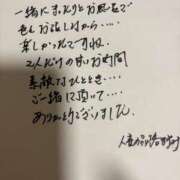 一緒にまったりとお風呂で
色んお話しながら....
楽しかったですね
2人だけの甘いお時間
素敵なひととき....
ご一緒に頂いて....
ありがとうございました。